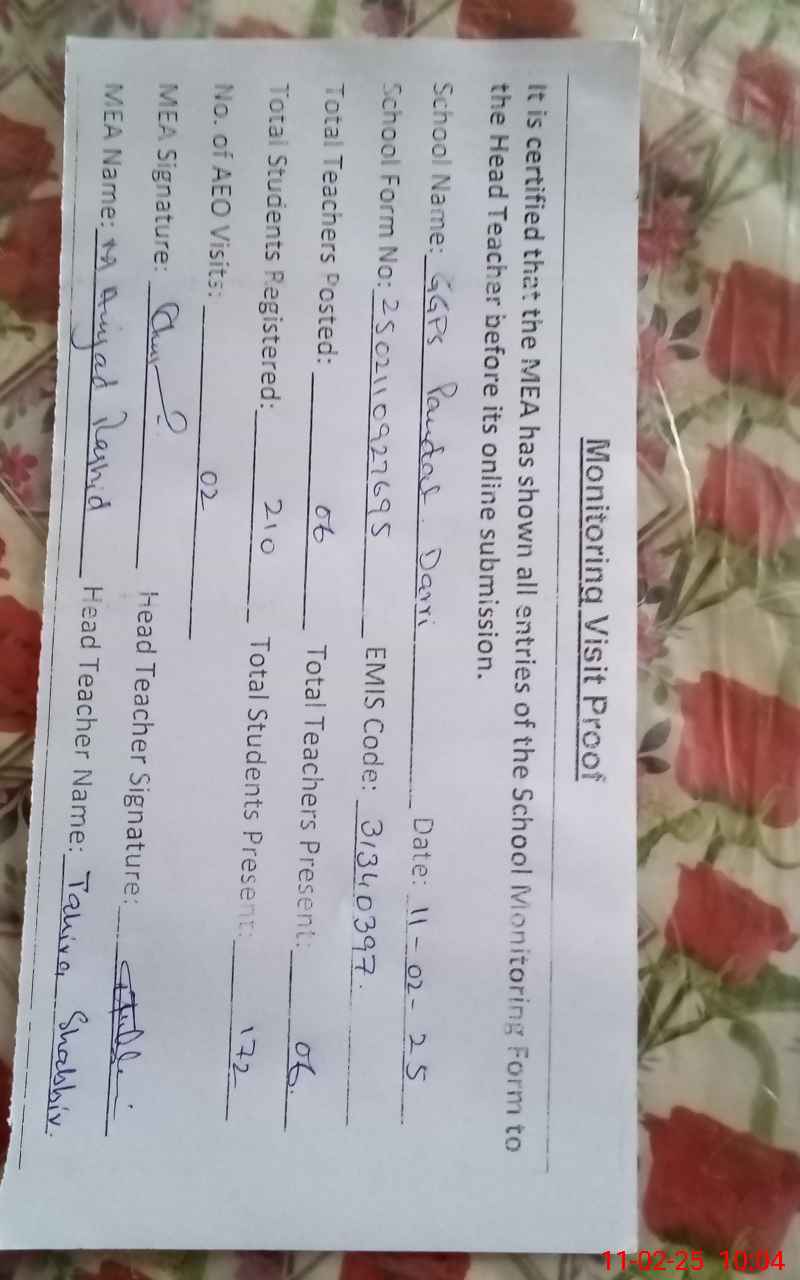 Monitoring Visit Proof
It is certified that the MEA has shown all entries of the School Monitoring Form to
the Head Teacher before its online submission.
School Name: GGPS Pandat Darri Date: 11-02-25
School Form No: 250211092769 5 EMIS Code: 31340397.
Total Teachers Posted: 06 Total Teachers Present: 06.
Total Students Registered: 210 Total Students Present: 172
No. of AEO Visits: 02
MEA Signature: Head Teacher Signature:
MEA Name: M Amjad Rashid Head Teacher Name: Tahira Shabbir.
11-02-25 10:04